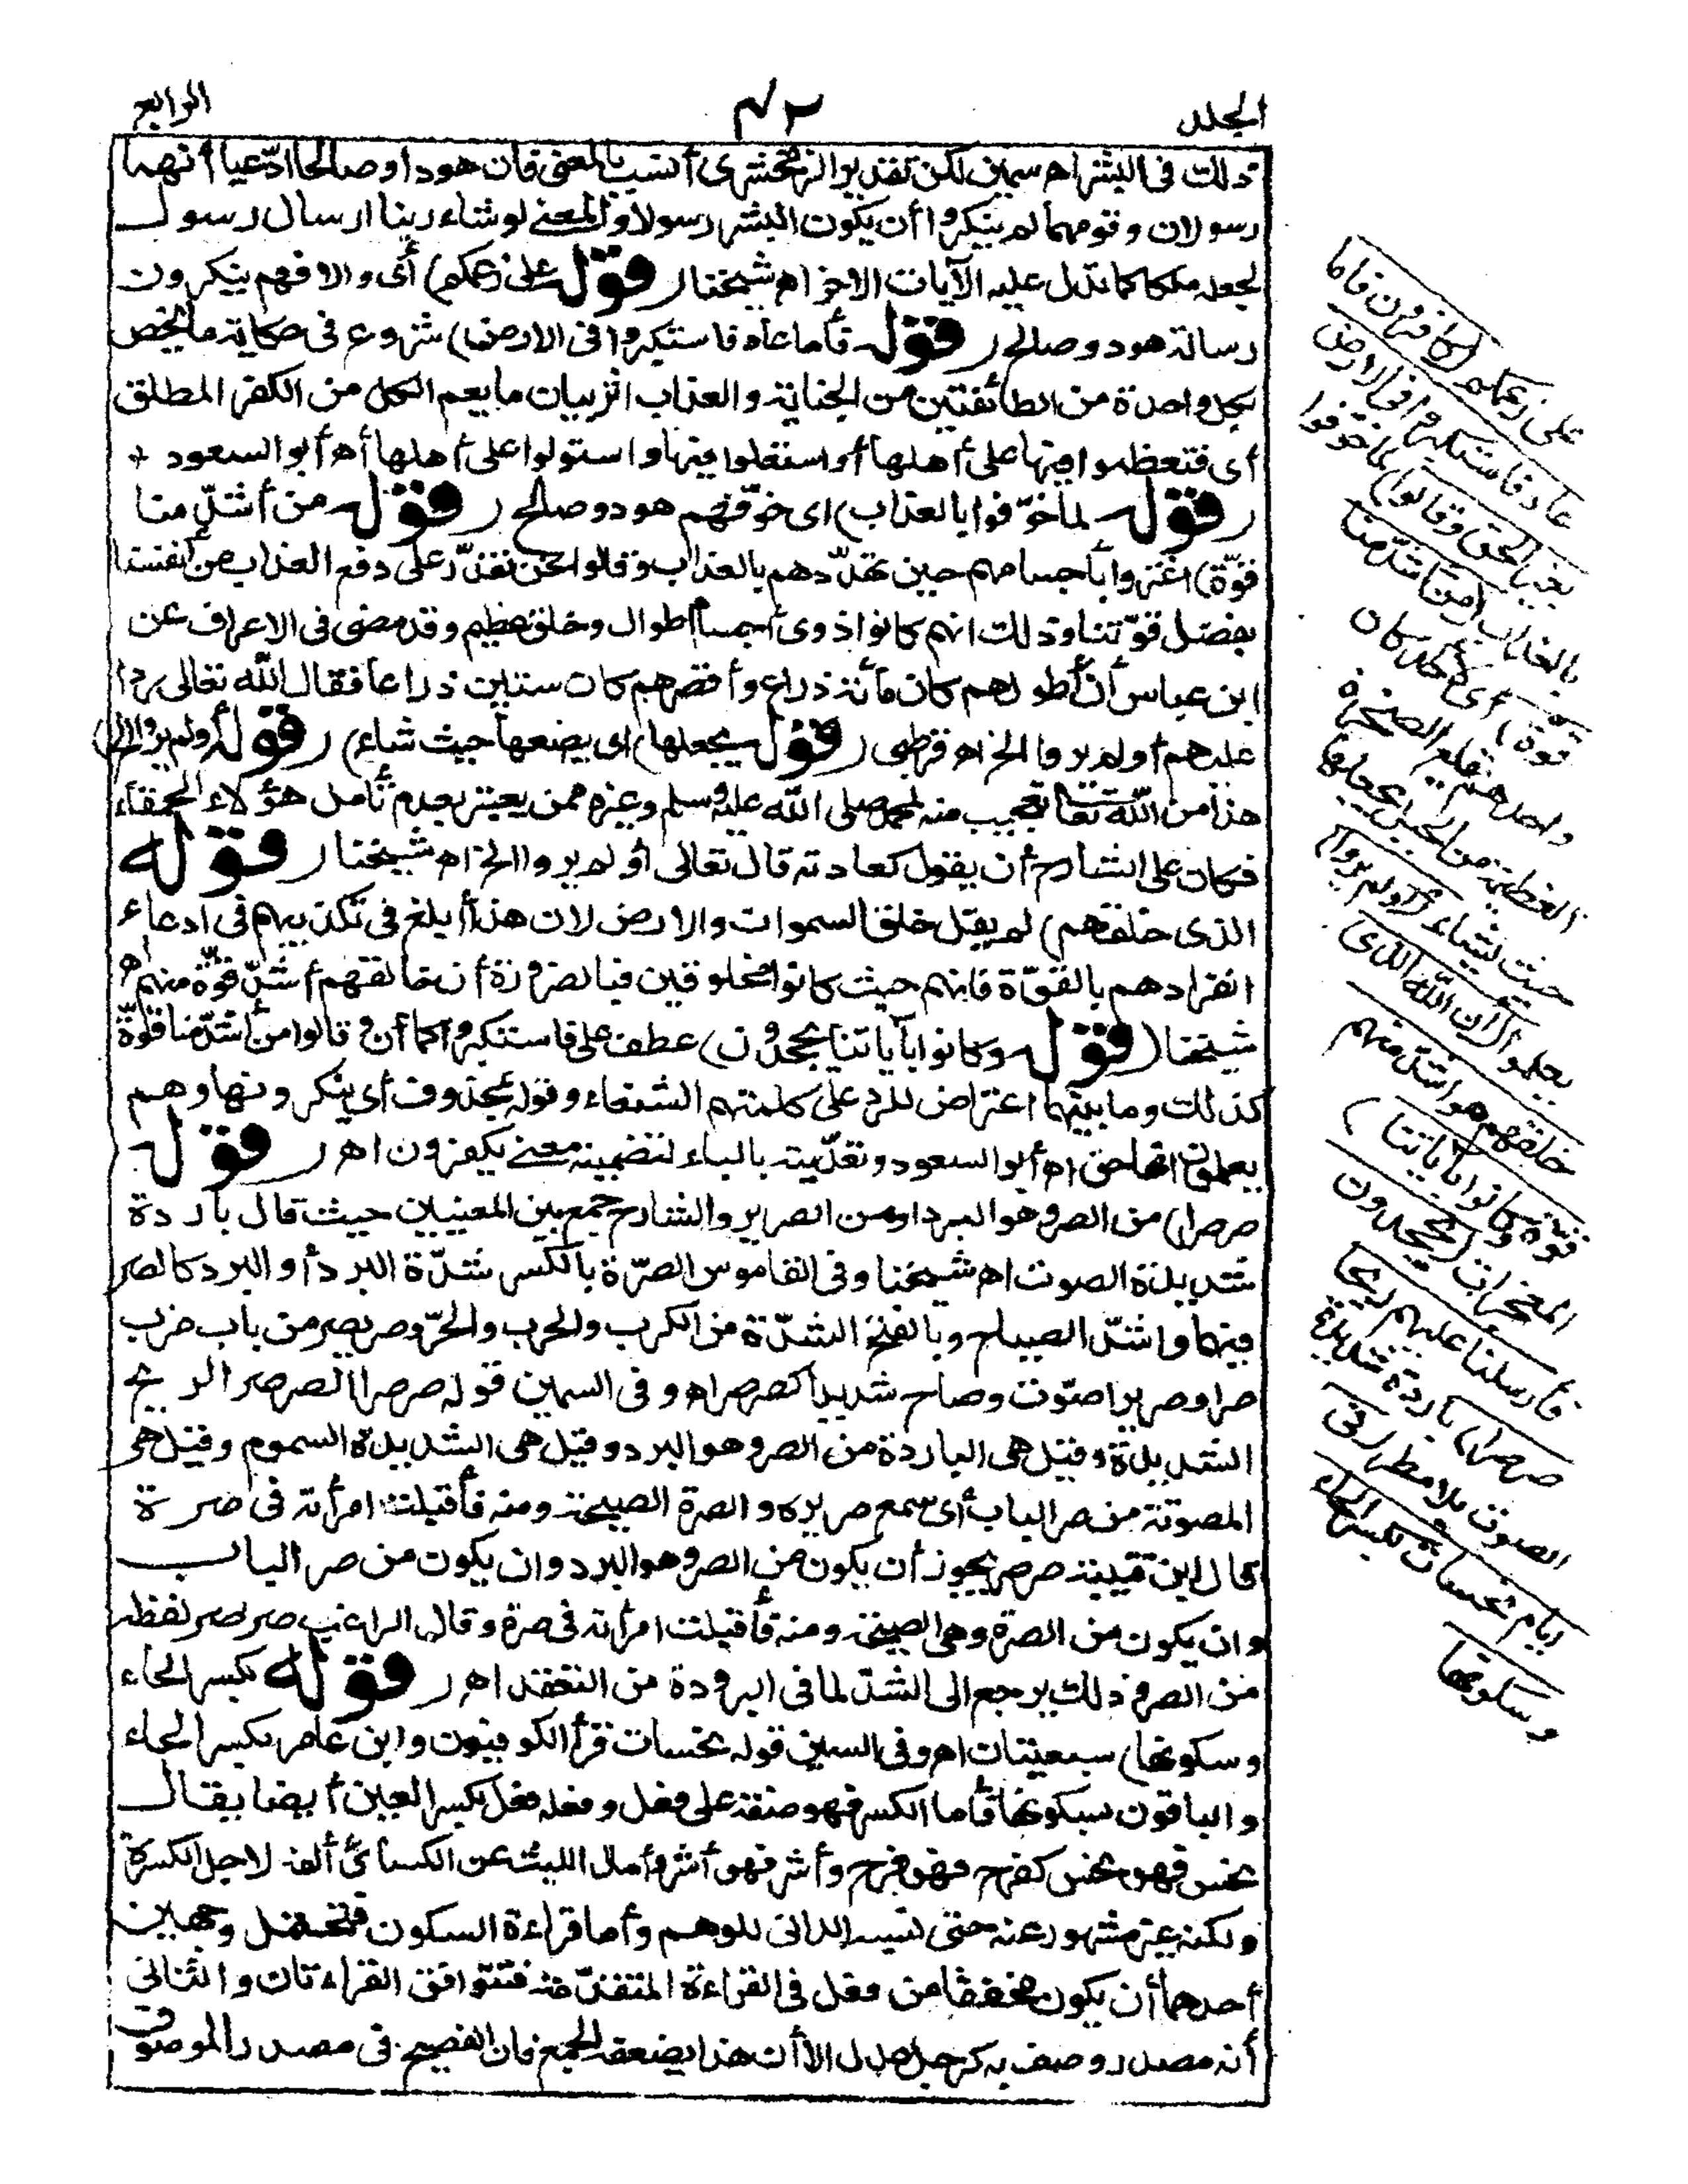 الجلد
٤٢
الرابع
ذلك في البشر اه سمين لكن تقدير الزمخشري أنسب بالمعنى فان هودا وصالحا ادّعيا أنهما
رسولان وقومهما لم ينكروا أن يكون البشر رسولا والمعنى لو شاء ربنا ارسال رسول
لجعله ملكا كما تدل عليه الآيات الاخر اه شيخنا (قوله على زعمكم) أي والا فهم ينكرون
رسالة هود وصالح (قوله فأما عاد فاستكبروا في الارض) شروع في حكاية ما يخص
بكل واحدة من الطائفتين من الجناية والعذاب اثر بيان ما يعم الكل من الكفر المطلق
أي فتعظموا فيها على أهلها أو استعلوا فيها واستولوا على أهلها اه أبو السعود
(قوله لما خوّفوا بالعذاب) اى خوّفهم هود وصالح (قوله من أشدّ منا
قوّة) اغتروا بأجسامهم حين تهدّدهم بالعذاب وقالوا نحن نقدر على دفع العذاب عن أنفسنا
بفضل قوّتنا وذلك انهم كانوا ذوى أجسام طوال وخلق عظيم وقد مضى في الاعراف عن
ابن عباس أن أطولهم كان مائة ذراع وأقصرهم كان ستين ذراعا فقال الله تعالى ردا
عليهم أولم يروا الخ اه قرطبى (قوله يجعلها) اى يضعها حيث شاء (قوله أولم يروا الخ)
هذا من الله تعالى تعجيب منه لمحمد صلى الله عليه وسلم وغيره ممن يعتبر بعدم تأمل هؤلاء الحمقاء
فكان على الشارح أن يقول كعادته قال تعالى أو لم يروا الخ اه شيخنا (قوله
الذى خلقهم) لم يقل خلق السموات والارض لان هذا أبلغ في تكذيبهم في ادعاء
انفرادهم بالقوّة فانهم حيث كانوا مخلوقين فبالضرورة أن خالقهم أشدّ قوّة منهم اه
شيخنا (قوله وكانوا بآياتنا يجحدون) عطف على فاستكبروا كما أن قالوا من أشدّ منا قوّة
كذلك وما بينهما اعتراض للرد على كلمتهم الشنعاء وقوله يجحدون أي ينكرونها وهم
يعلمون انها حق اه أبو السعود وتعدّيته بالباء لتضمينه معنى يكفرون اه (قوله
صرصرا) من الصر وهو البرد او من الصرير والشارح جمع بين المعنيين حيث قال باردة
شديدة الصوت اه شيخنا وفى القاموس الصرّة بالكسر شدّة البرد أو البرد كالصر
فيهما واشدّ الصياح وبالفتح الشدّة من الكرب والحرب والحرّ وصر يصر من باب ضرب
صرا وصريرا صوّت وصاح شديدا كصرصر اه وفى السمين قوله صرصرا الصرصر الريح
الشديدة وقيل هى الباردة من الصر وهو البرد وقيل هى الشديدة السموم وقيل هى
المصوتة من صر الباب أى سمع صريره والصرة الصيحة ومنه فأقبلت امرأته في صرة
قال ابن قتيبة صرصر يجوز أن يكون من الصر وهو البرد وان يكون من صر الباب
وان يكون من الصرة وهى الصيحة ومنه فأقبلت امرأته في صرة وقال الراغب صرصر لفظه
من الصر وذلك يرجع الى الشد لما فى البرودة من التعقد اه (قوله بكسر الحاء
وسكونها) سبعيتان اه وفى السمين قوله نحسات قرأ الكوفيون وابن عامر بكسر الحاء
والباقون بسكونها فأما الكسر فهو صفة على فعل وفعله فعل بكسر العين أيضا يقال
نحس فهو نحس كفرح فهو فرح وأشر فهو أشر وأمال الليث عن الكسائى ألفه لاجل الكسرة
ولكنه غير مشهور عنه حتى نسبه الدانى للوهم وأما قراءة السكون فتحتمل وجهين
أحدهما أن يكون مخففا من فعل في القراءة المتقدّمة فتتوافق القراءتان والثانى
أنه مصدر وصف به كرجل عدل الا أن هذا يضعفه الجمع فان الفصيح في مصدر الموصوف
على زعمكم (كافرون فأما
عاد فاستكبروا في الارض
بغير الحق وقالوا) لما خوّفوا
بالعذاب (من أشدّ منا
قوّة) أي لا أحد كان
واحدهم يقلع الصخرة
العظيمة من الجبل يجعلها
حيث يشاء (أولم يروا)
يعلموا (أن الله الذي
خلقهم هو أشدّ منهم
قوّة وكانوا بآياتنا)
المعجزات (يجحدون
فأرسلنا عليهم ريحا
صرصرا) باردة شديدة
الصوت بلا مطر (فى
أيام نحسات) بكسر الحاء
وسكونها